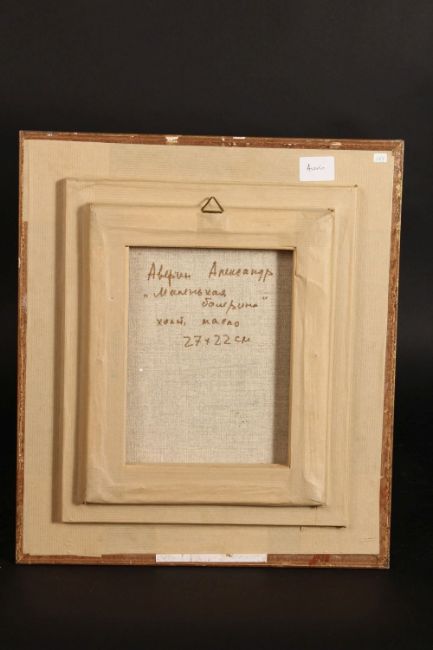 Аверин Александр
„Маленькая
балерина"
холст, масло
27 x 22 см